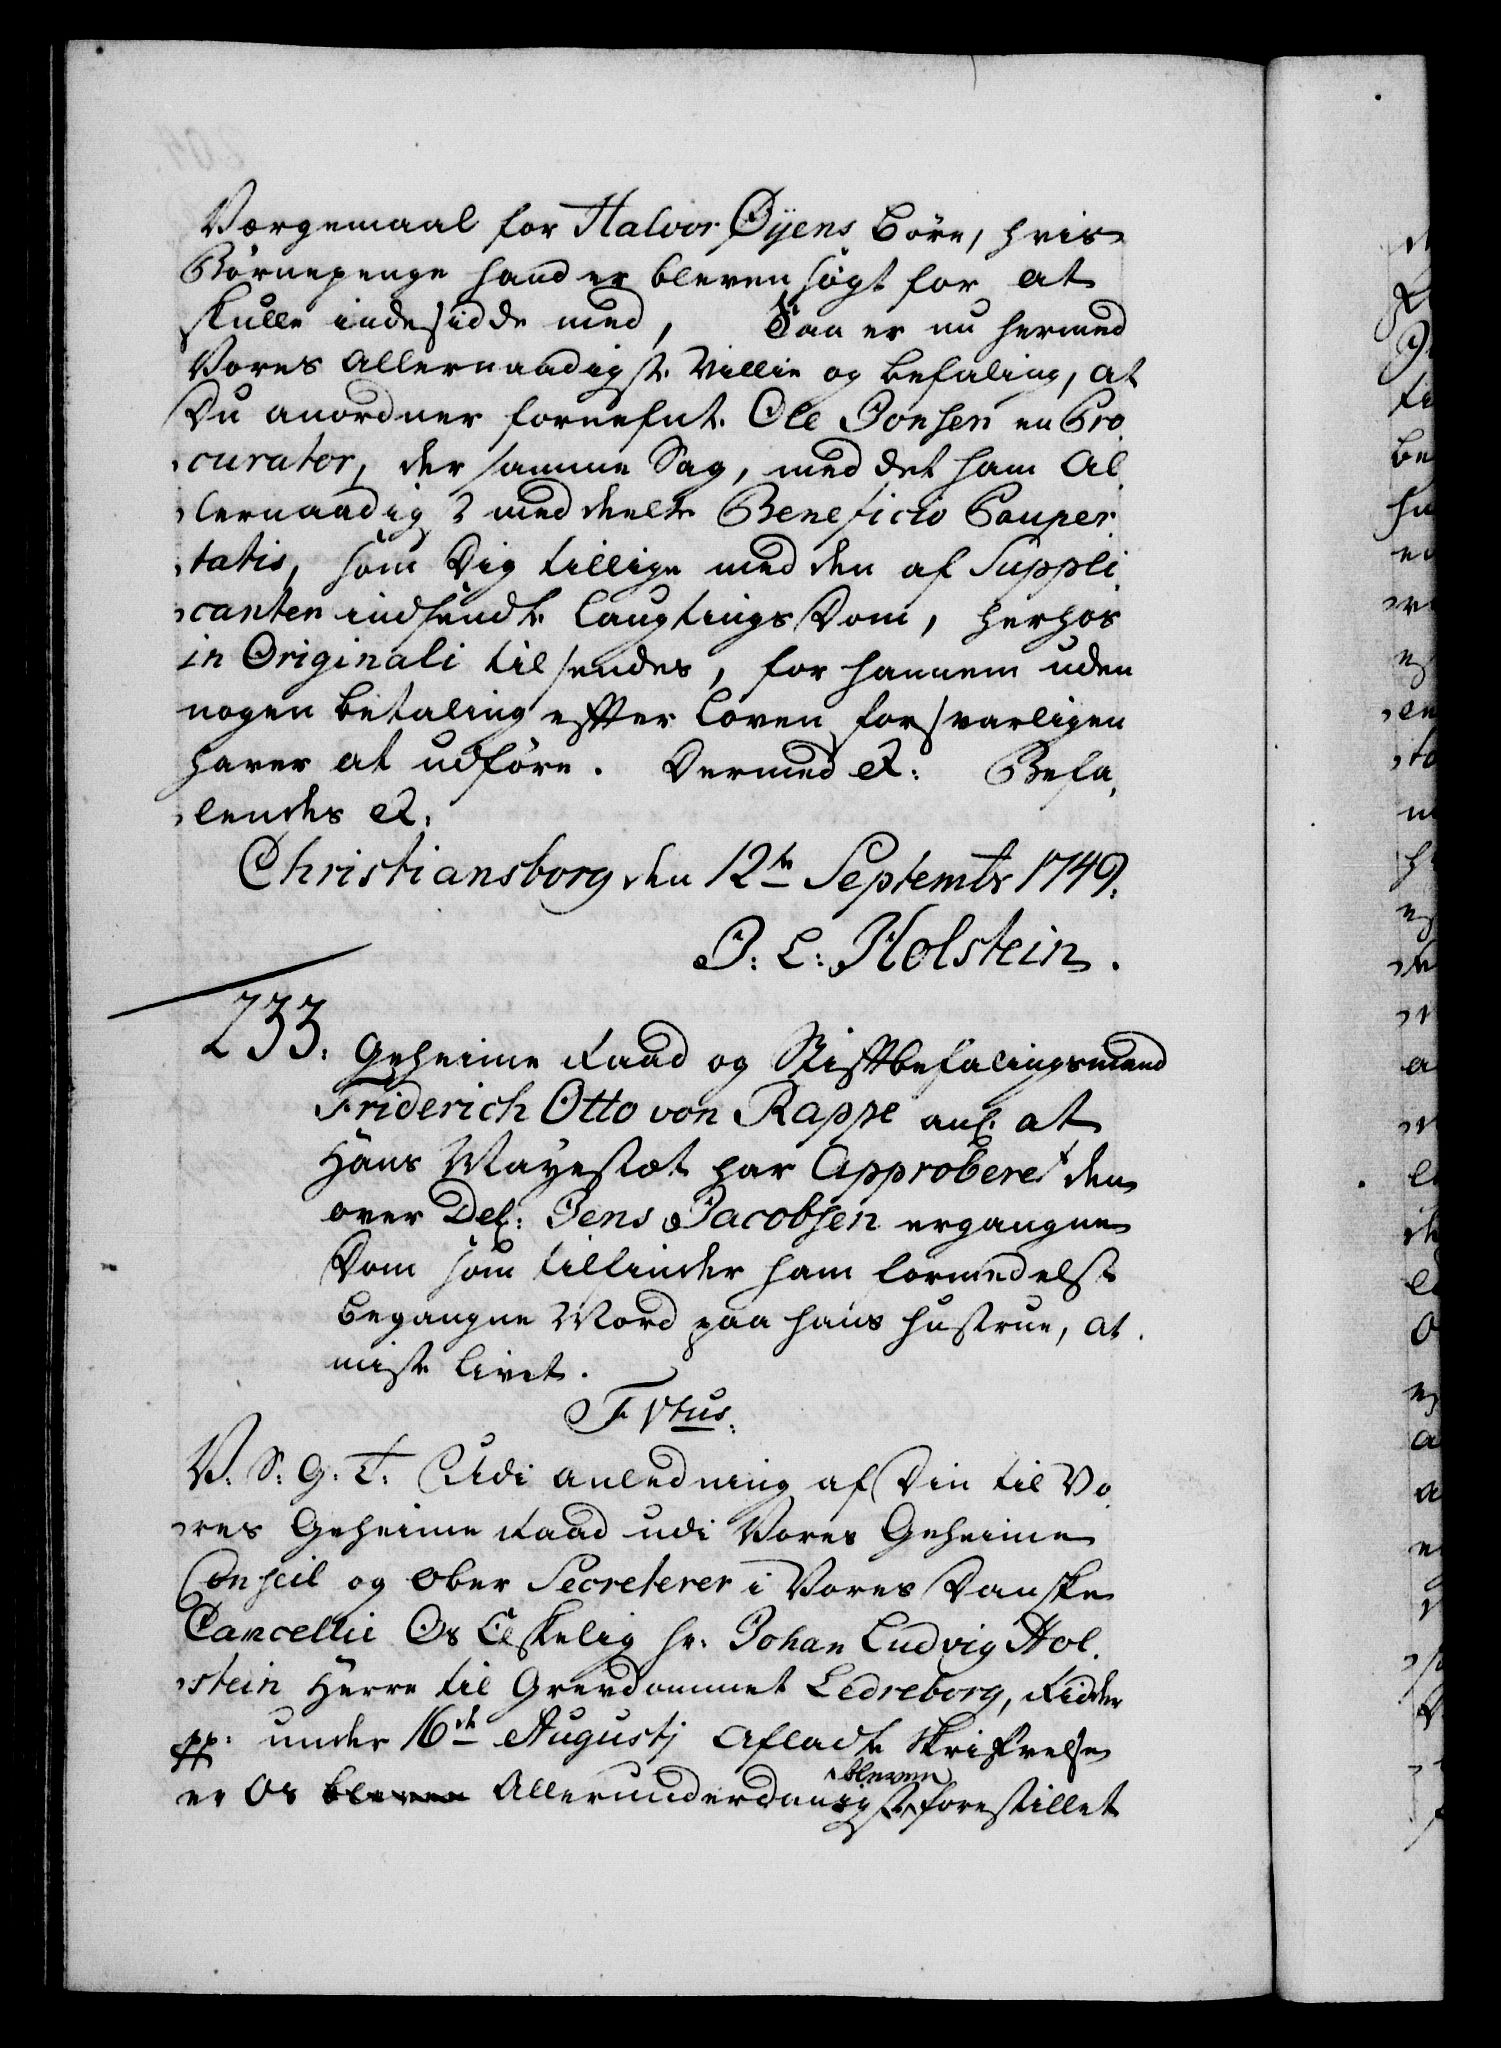 Værgemaal for Halvor Øÿens Børn, hvis
Børnepenge hand er bleven søgt for at
skulle indesidde med, Saa er nu hermed
Vores allernaadigste Villie og befaling, at
Du anordner fornefnte Ole Jonsen en Pro
curator, der samme Sag, med det ham Al
lernaadigst meddeelte Beneficio Pauper
tatis, som Dig tillige med den af Suppli
canten indsendte Laugtings Dom, herhos
in Originali tilsendes, for hannem uden
nogen betaling efter Loven forsvarligen
haver at udføre. Dermed &: Befa
lendes &:
Christiansborg den 12te Septembr 1749.
J: L: Holstein.
233. Geheime Raad og Stiftbefalingsmand
Friderich Otto von Rappe anl. at
Hans Mayestæt har Approberet den
over Del: Jens Jacobsen ergangne
Dom som tilfinder ham formedelst
begangne Mord paa hans hustrue, at
miste livet.
F Vtus.
V. S: G. T. Udi anledning af Din til Vo
res Geheime Raad udi Vores Geheime
Conseil og Ober Secreterer i Vores Danske
Cancellie Os Elskelig hr. Johan Ludvig Hol
stein Herre til Grevdommet Ledreborg, Ridder
pp. under 16de Augustj afladte Skrifvelse
er Os bleven Allerunderdanigst bleven forestillet